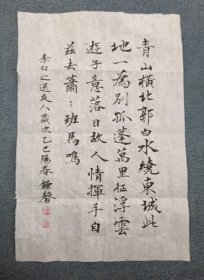 青山横北郭白水繞東城此
地一為別孤蓬萬里征浮雲
遊子意落日故人情揮手自
兹去蕭〻班馬鳴
李白之送友人歲次乙巳陽春